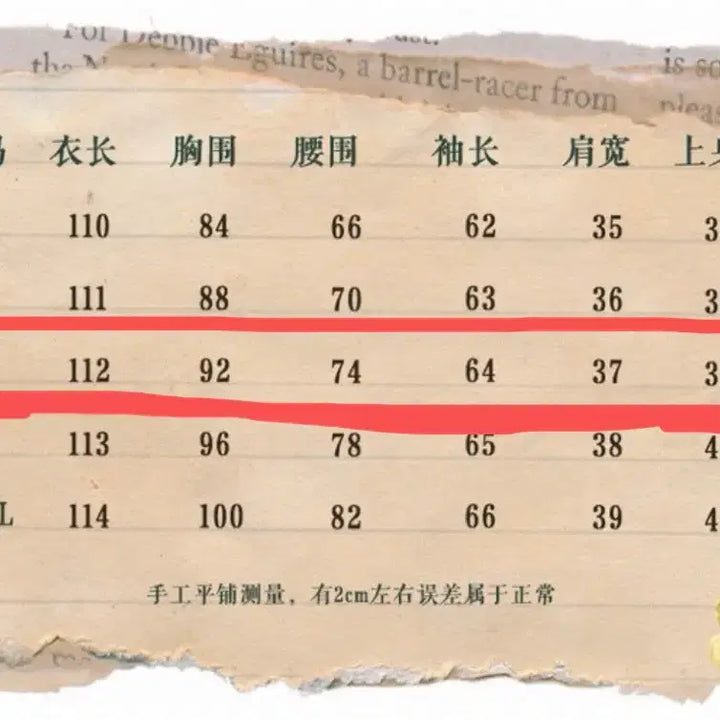 For Debbie Eguires, a barrel-racer from
is so
the N
pleas
衣长 胸围 腰围 袖长 肩宽 上
110 84 66 62 35 3
111 88 70 63 36 3
112 92 74 64 37 3
113 96 78 65 38 4
L 114 100 82 66 39 4
手工平铺测量，有2cm左右误差属于正常